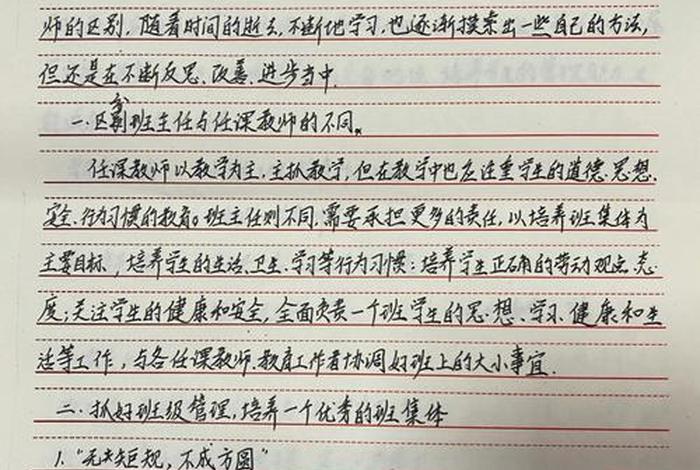 师的区别, 随着时间的逝去, 不断地学习, 也逐渐摸索出一些自己的方法,
但还是在不断反思、改善、进步当中.
一.区分班主任与任课教师的不同。
任课教师以教学为主, 主抓教学, 但在教学中也应注重学生的道德、思想、
安全、行为习惯的教育。班主任则不同, 需要承担更多的责任, 以培养班集体为
主要目标, 培养学生的生活、卫生、学习等行为习惯; 培养学生正确的劳动观点、态
度; 关注学生的健康和安全, 全面负责一个班学生的思、想、学习、健康和生
活等工作, 与各任课教师、教育工作者协调好班上的大小事宜.
二. 抓好班级管理, 培养一个优秀的班集体
1. “无规矩, 不成方圆”